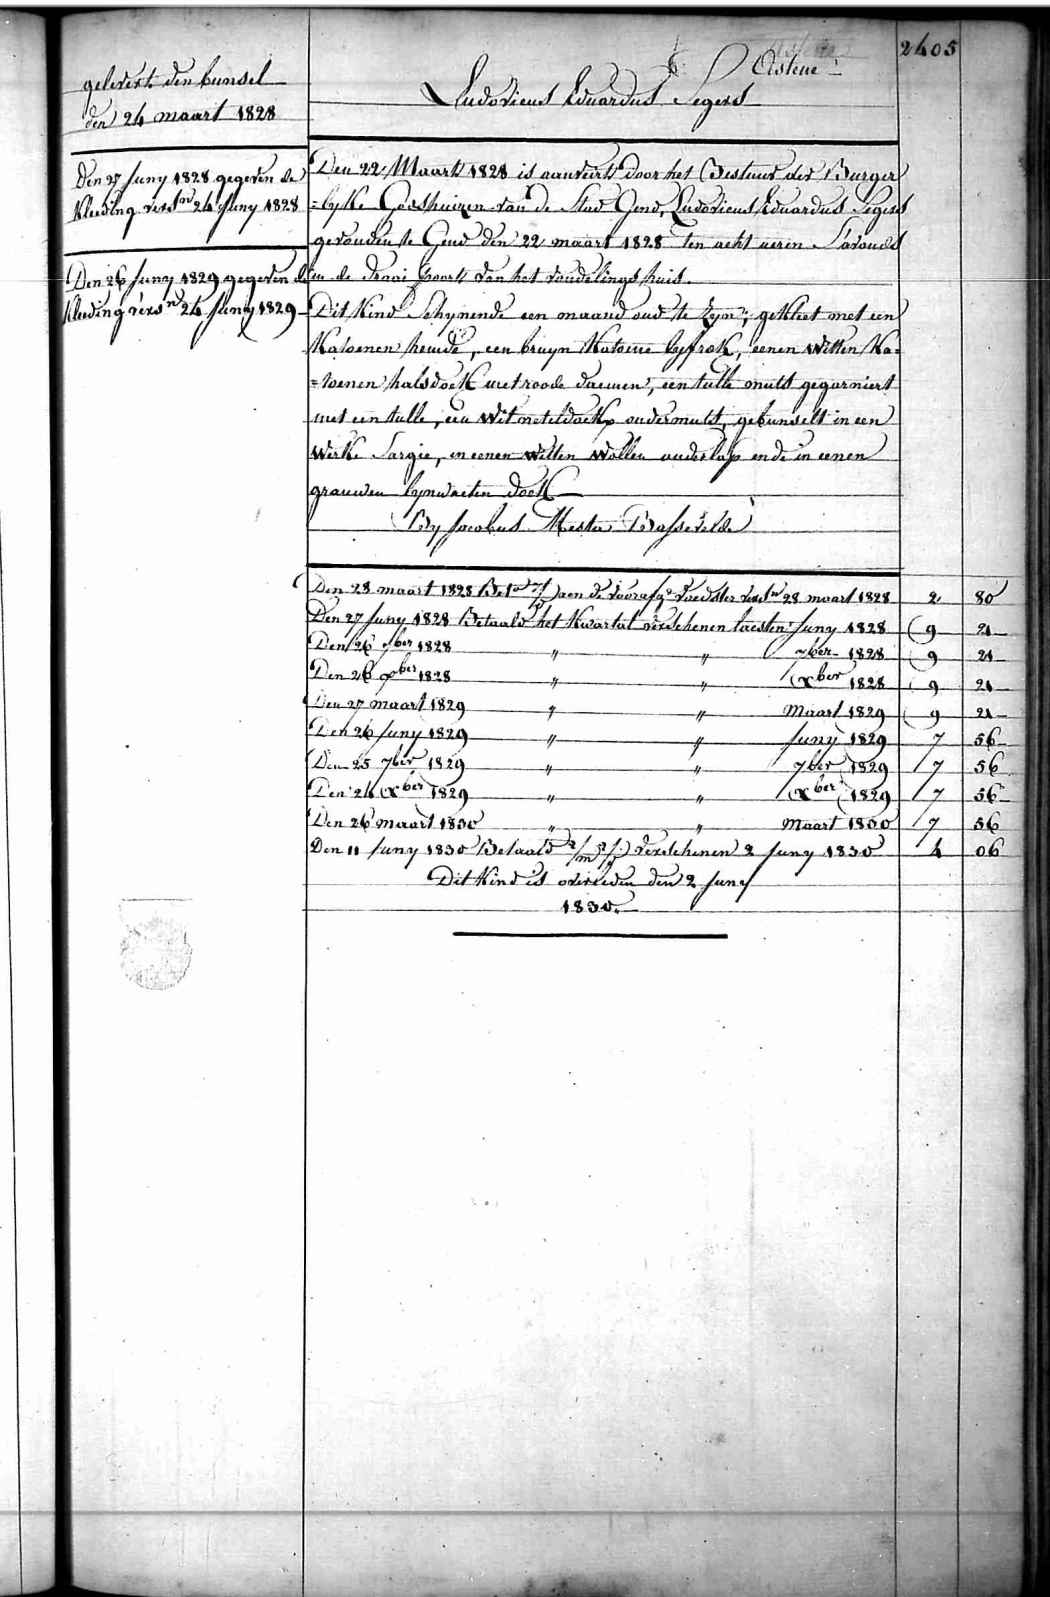 2405
Astene
Ludovicus Eduardus Segers
gelevert den bunsel
den 24 maart 1828
Den 27 Juny 1828 gegeven de
kleeding versn 24 Juny 1828
Den 26 Juny 1829 gegeven de
kleeding versn 24 Juny 1829
Den 22 Maart 1828 is aanveert door het Bestuur der Burger
=lyke Godshuizen van de Stad Gend, Ludovicus Eduardus Segers
gevonden te Gend den 22 maart 1828 ten acht uren s'avonds
in de draai poort van het vondelings huis.
Dit Kind Schynende een maand oud te zyn; gekleet met een
Katoenen hemde, een bruyn Katoene lyfrok, eenen Witten Ka=
=toenen halsdoek met roode daemen, een tulle muts gegarniert
met een tulle, een Wit neteldoek ondermuts, gebunselt in een
Witte Sargie, en eenen Witten Wollen onderlap ende in eenen
grauwen lynwaeten doek
By Jacobus Mestu Bassevelde
Den 28 maart 1828 Beto aen de voorafge Voedster versn 28 maart 1828 2 80
Den 27 Juny 1828 Betaald het Kwartal verschenen laesten Juny 1828 9 21
Den 26 7ber 1828 " " 7ber 1828 9 21
Den 26 xber 1828 " " xber 1828 9 21
Den 27 maart 1829 " " Maart 1829 9 21
Den 26 Juny 1829 " " Juny 1829 7 56
Den 25 7ber 1829 " " 7ber 1829 7 56
Den 24 xber 1829 " " xber 1829 7 56
Den 26 maart 1830 " " Maart 1830 7 56
Den 11 Juny 1830 Betaald 2/m verschenen 2 Juny 1830 4 06
Dit Kind is overleden den 2 Juny
1830.